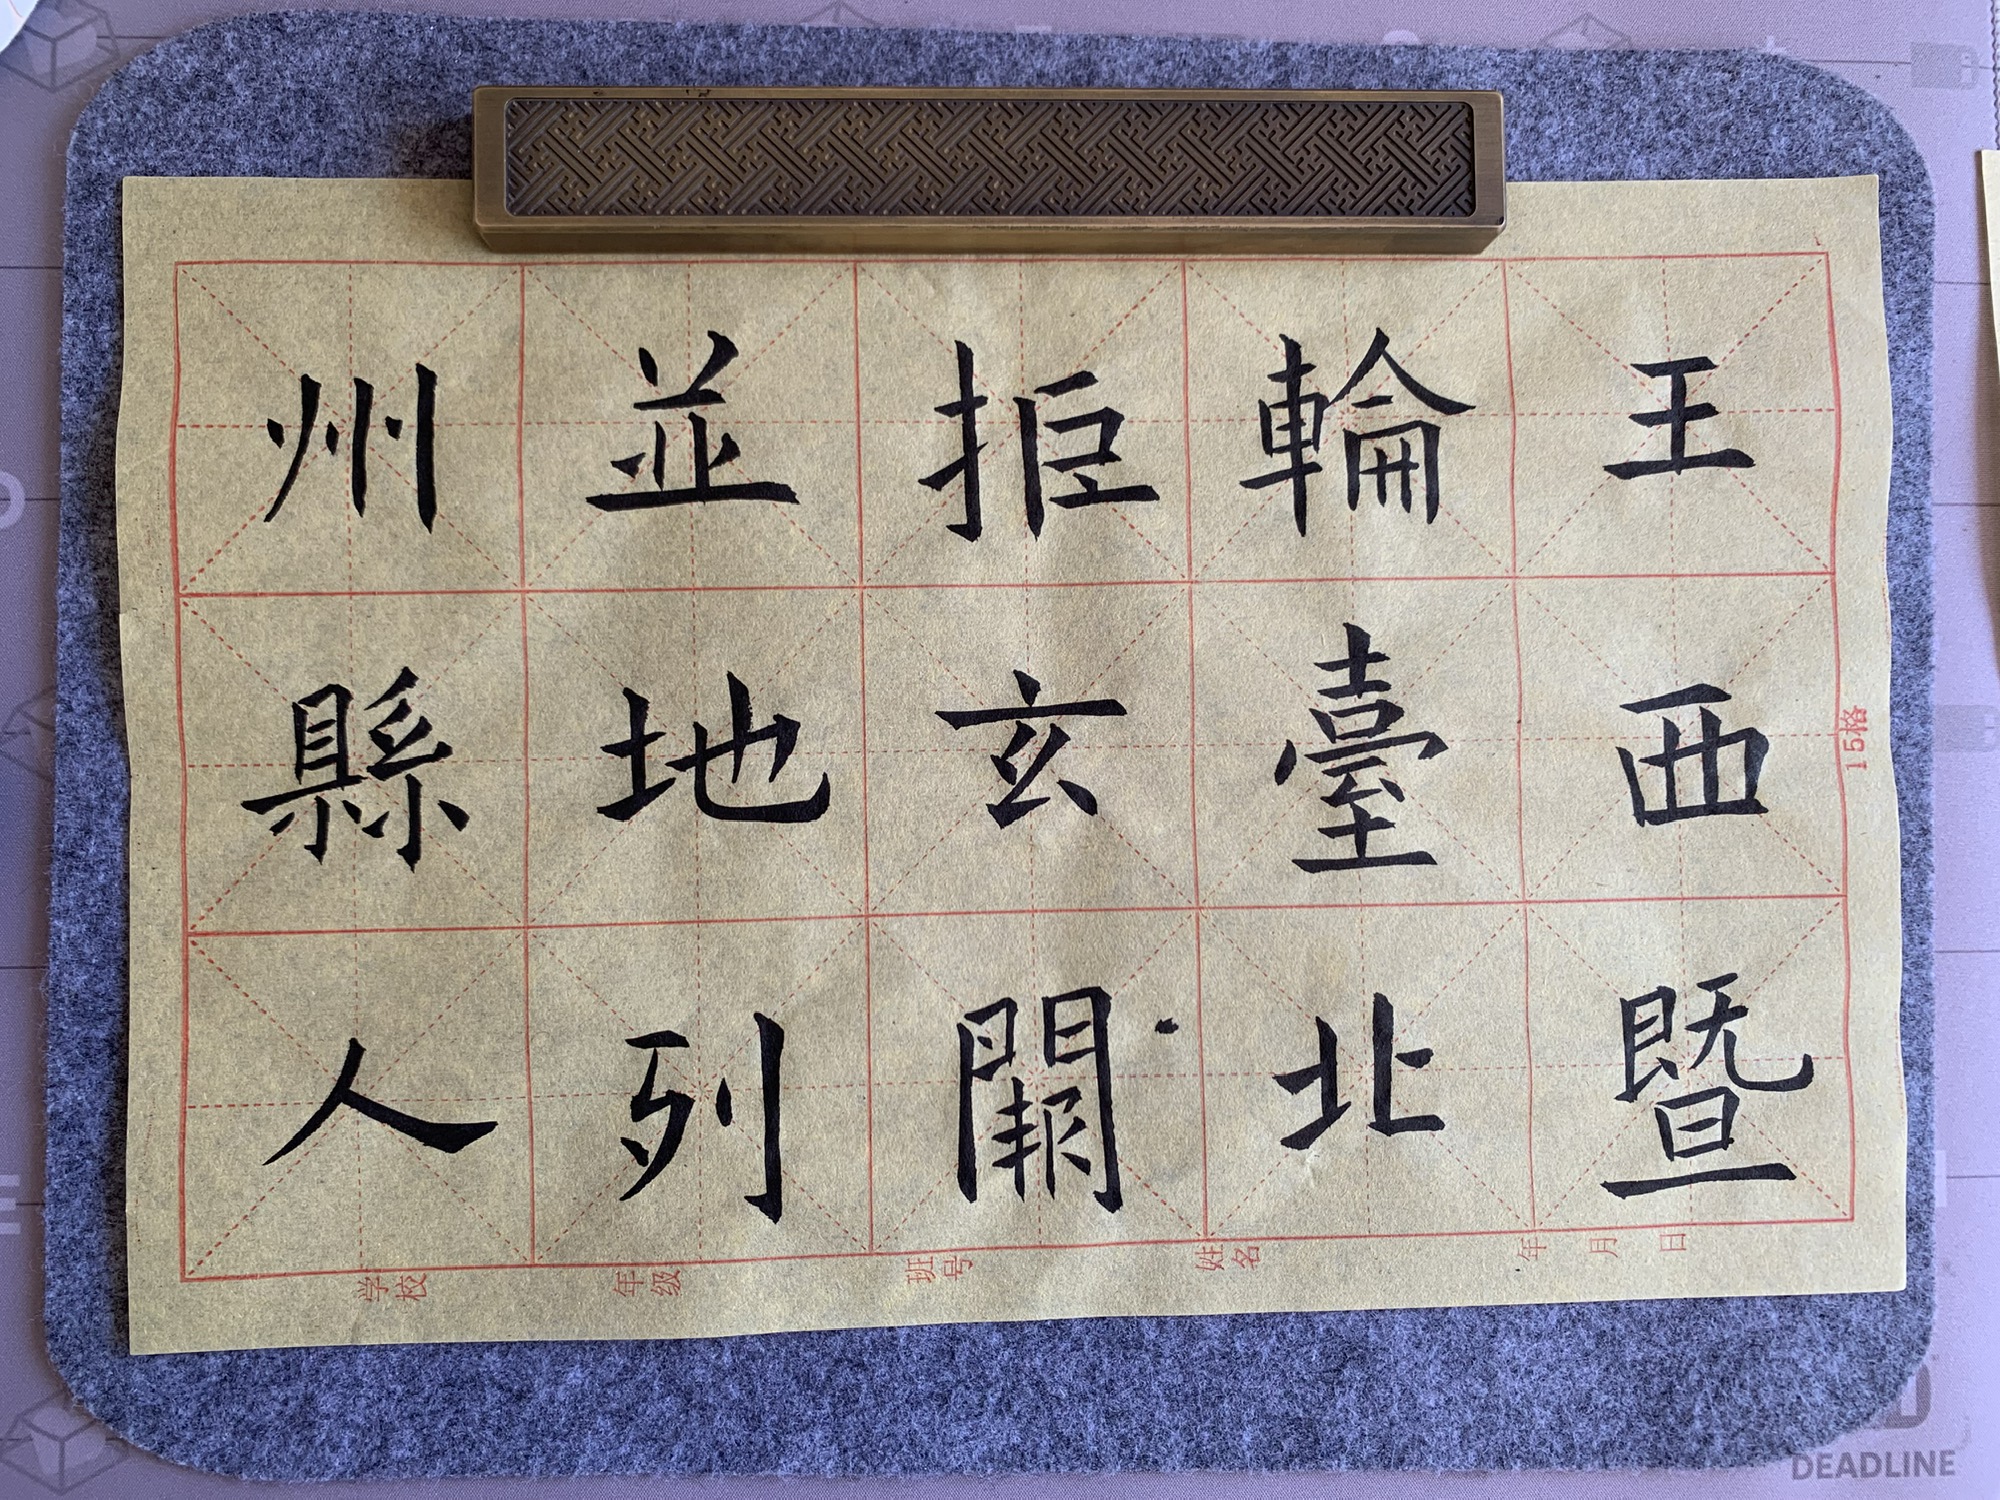 王西暨
輪臺北
拒玄闕
並地列
州縣人
15格
学校 年级 班号 姓名 年 月 日
DEADLINE